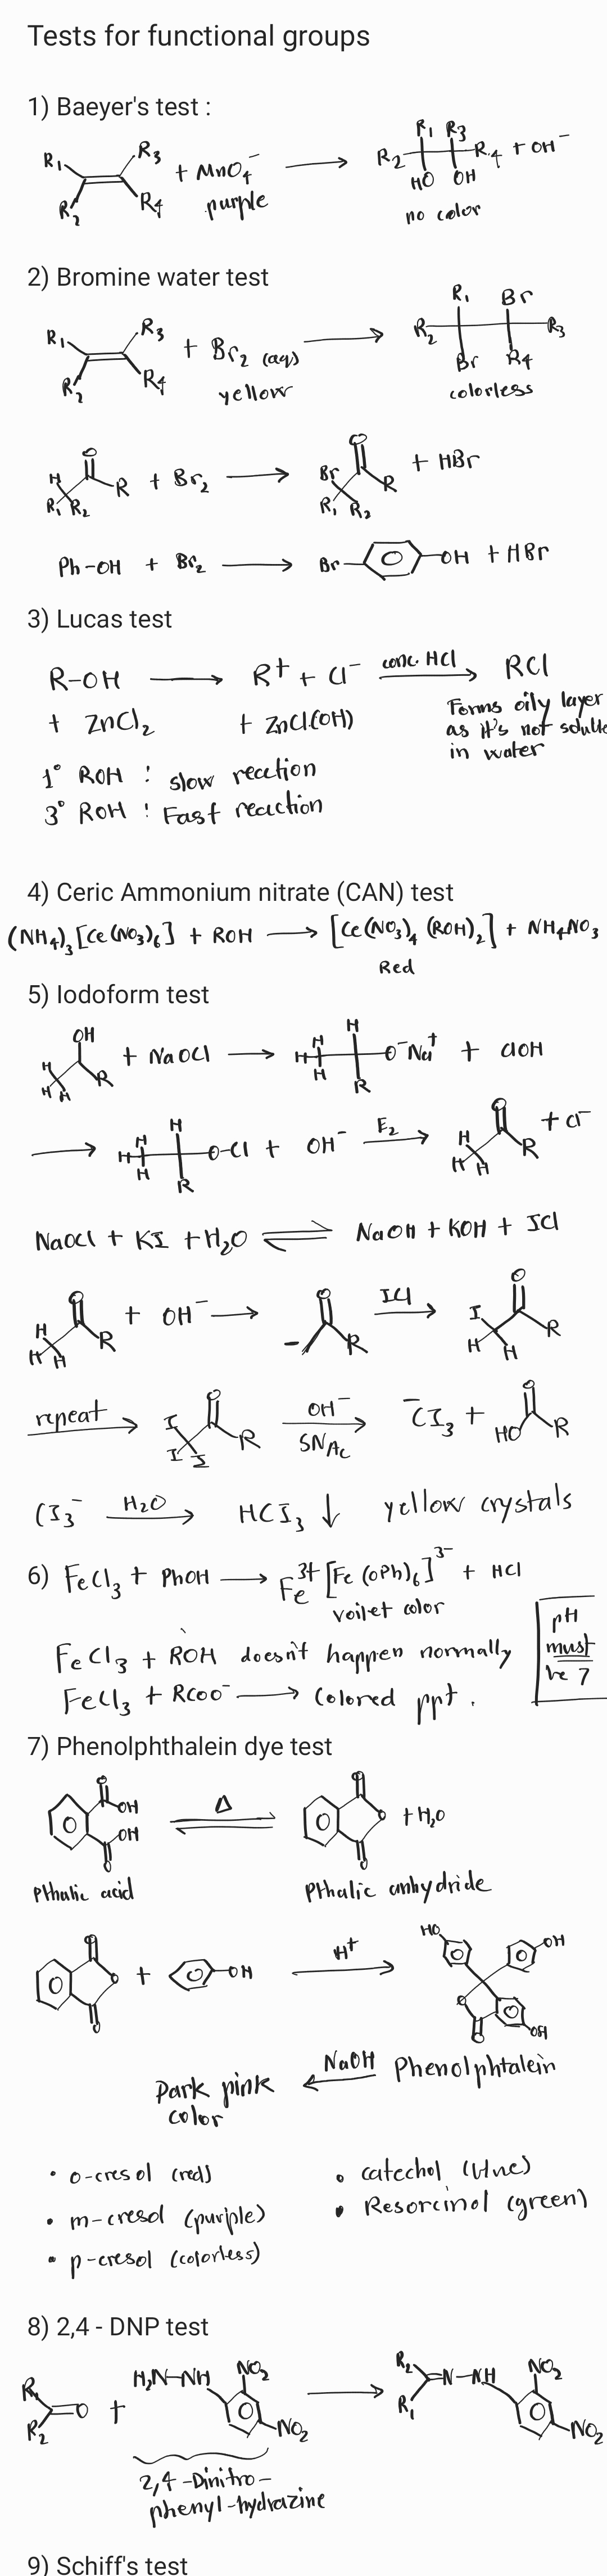 Tests for functional groups
1) Baeyer's test :
R₁ R₃ R₂ R₄ + MnO₄⁻ → R₁ R₃ R₂ R₄ HO OH + OH⁻
purple no color
2) Bromine water test
R₁ R₃ R₂ R₄ + Br₂ (aq) → R₁ Br R₂ R₃ Br R₄
yellow colorless
H O R R₁ R₂ + Br₂ → Br O R R₁ R₂ + HBr
Ph-OH + Br₂ → Br OH + HBr
3) Lucas test
R-OH → R⁺ + Cl⁻ conc. HCl → RCl
+ ZnCl₂ + ZnCl(OH) Forms oily layer
as it's not soluble
in water
1° ROH : slow rection
3° ROH : Fast reaction
4) Ceric Ammonium nitrate (CAN) test
(NH₄)₃[Ce(NO₃)₆] + ROH → [Ce(NO₃)₄(ROH)₂] + NH₄NO₃
Red
5) Iodoform test
OH H H H R + NaOCl → H H H H R O⁻Na⁺ + ClOH
→ H H H H R O-Cl + OH⁻ E₂ → O H H H R + Cl⁻
NaOCl + KI + H₂O ⇌ NaOH + KOH + ICl
O H H H R + OH⁻ → O - R ICl → O I H H R
repeat → I I I O R OH⁻ SNAc → ⁻CI₃ + O HO R
CI₃⁻ H₂O → HCI₃ ↓ yellow crystals
6) FeCl₃ + PhOH → Fe³⁺[Fe(OPh)₆]³⁻ + HCl
voilet color
FeCl₃ + ROH doesn't happen normally
FeCl₃ + RCOO⁻ → Colored ppt.
pH
must
be 7
7) Phenolphthalein dye test
O OH OH O Δ ⇌ O O O + H₂O
Pthalic acid Pthalic anhydride
O O O + OH H⁺ → HO OH O O OH
Dark pink ← NaOH Phenolphtalein
color
• o-cresol (red) • catechol (blue)
• m-cresol (purple) • Resorcinol (green)
• p-cresol (colorless)
8) 2,4 - DNP test
R₁ R₂ =O + H₂N-NH NO₂ NO₂ → R₂ R₁ =N-NH NO₂ NO₂
2,4-Dinitro-
phenyl-hydrazine
9) Schiff's test